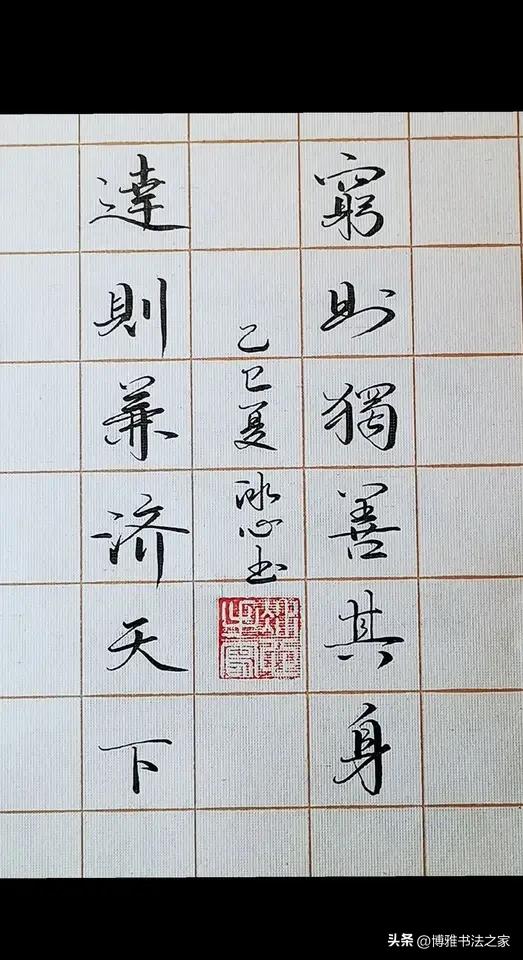 窮則獨善其身
達則兼济天下
乙巳夏 冰心书
头条 @博雅书法之家